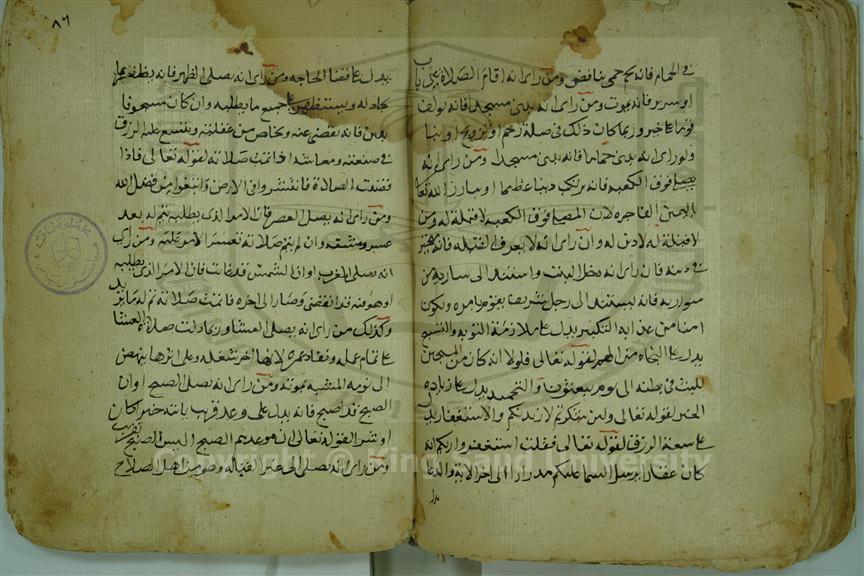 في الحمام فانه يحم حمى بنافض ومن راى انه اقام الصلاة على باب
او سرير فانه يموت ومن راى انه بنى مسجدا فانه يولف
قوما على خير وربما كان ذلك في صلة رحم او تزويج او بنا
ولو راى انه بنى حماما فانه بنى مسجدا ومن راى انه
يصلي فوق الكعبه فانه يرتكب ذنبا عظيما او يبارز الله تعالى
باليمين الفاجره لان المصلي فوق الكعبه لا قبلة له ومن
لا قبلة له لا دين له وان راى انه لا يعرف القبله فانه متحير
في دينه فان راى انه دخل البيت واستند الى سارية من
سواريه فانه يستند الى رجل شريف يفوض امره ويكون
امنا من عدايه التكبير يدل على ملازمة التوبه والتسبيح
يدل على النجاه من الهم لقوله تعالى فلولا انه كان من المسبحين
للبث في بطنه الى يوم يبعثون والتحميد يدل على زياده
الخير لقوله تعالى ولين شكرتم لازيدنكم والاستغفار يدل
على سعة الرزق لقوله تعالى فقلت استغفروا ربكم انه
كان غفارا يرسل السما عليكم مدرارا الى اخر الاية والدعا
يدل
٨٦
يدل على قضا الحاجه ومن راى انه يصلي الظهر فانه يظفر بما
يحاوله ويستظهر على جميع ما يطلبه وان كان مسجونا
بدين فانه يقضى عنه ويخلص من عقلته ويتسع عليه الرزق
في صنعته ومعاشه اذا تمت صلاته لقوله تعالى فاذا
قضيت الصلاة فانتشروا في الارض وابتغوا من فضل الله
ومن راى انه يصلي العصر فان الامر الذي يطلبه يتم له بعد
عسر ومشقه وان لم يتم صلاته تعسر الامر عليه ومن راى
انه يصلي المغرب او ان الشمس قد غابت فان الامر الذي يطلبه
او هو فيه قد انقضى وصار الى اخره فان تمت صلاته تم له ما يريد
وكذلك من راى انه يصلي العشا وربما دلت صلاة العشا
على تمام عمله ونفاد عمره لانها اخر شغله وعلى اثرها ينهض
الى نومه المشبه بموته ومن راى انه يصلي الصبح او ان
الصبح قد اصبح فانه يدل على وعد قريب ياتيه خيرا كان
او شرا لقوله تعالى ان موعدهم الصبح اليس الصبح بقريب
ومن راى انه يصلي الى غير القبله وهو من اهل الصلاح
Copyright © King Saud University